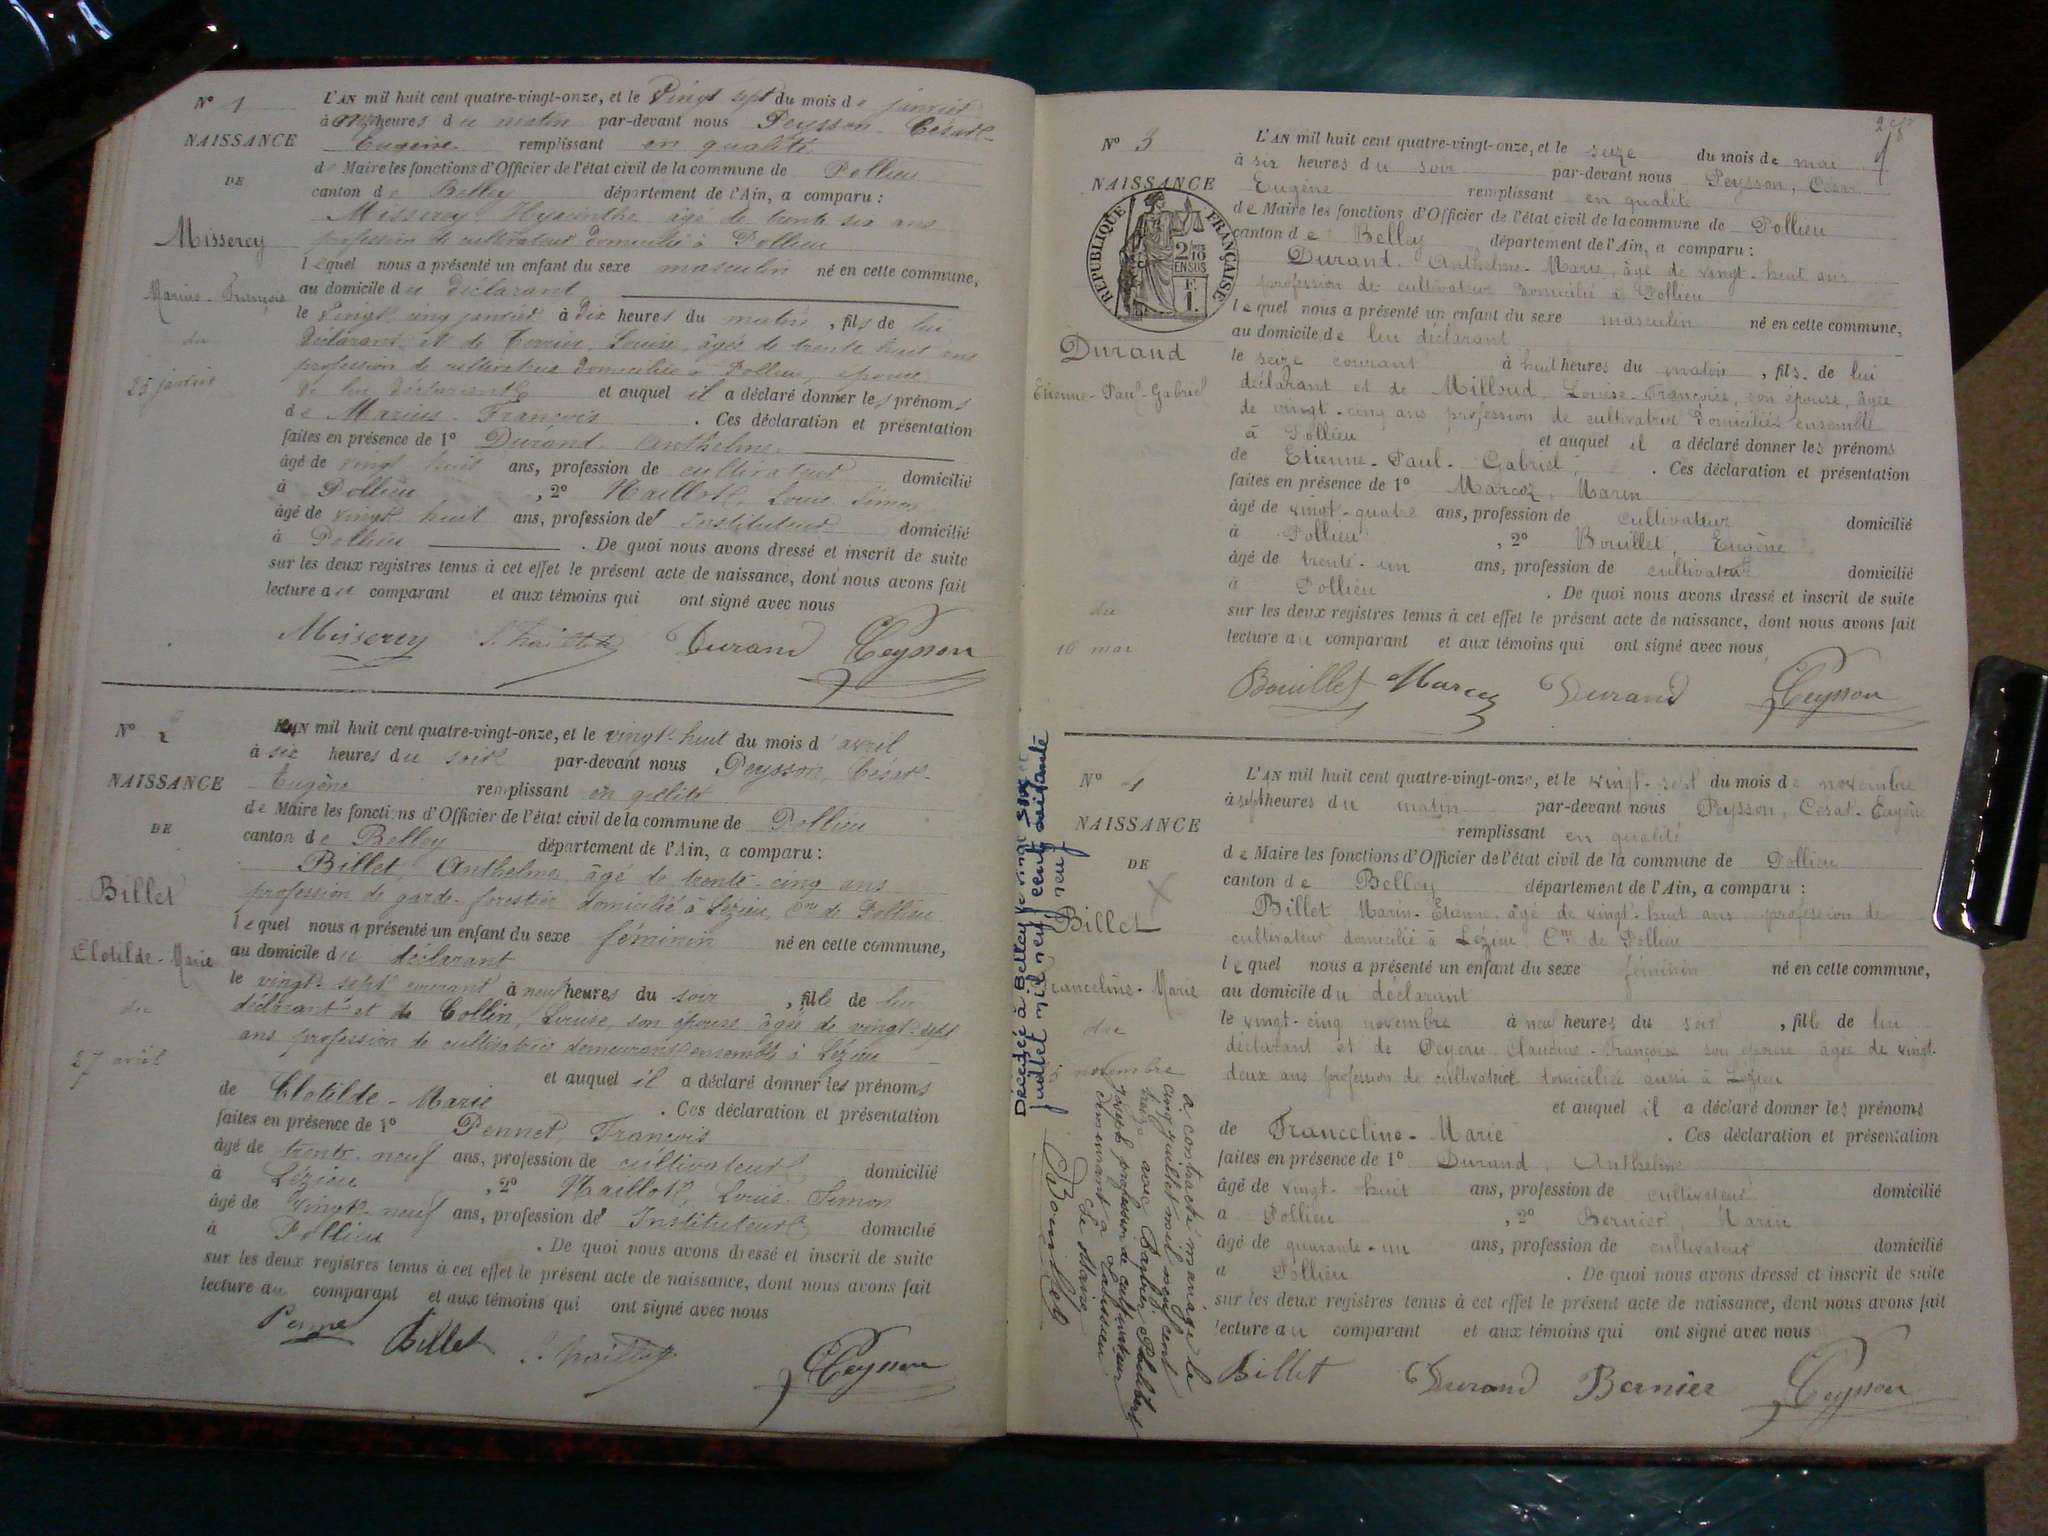 N° 1
NAISSANCE
DE
Misserey
Marius-François
du
25 janvier
L'AN mil huit cent quatre-vingt-onze, et le Vingt sept du mois de janvier
à onze heures du matin par-devant nous Peysson, César-
Eugène remplissant en qualité
de Maire les fonctions d'Officier de l'état civil de la commune de Pollieu
canton de Belley département de l'Ain, a comparu :
Misserey, Hyacinthe, âgé de trente six ans
profession de cultivateur domicilié à Pollieu
lequel nous a présenté un enfant du sexe masculin né en cette commune,
au domicile du déclarant
le Vingt cinq janvier à Dix heures du matin, fils de lui
déclarant et de Louise, âgée de trente huit ans
profession de cultivatrice domiciliée à Pollieu, épouse
de lui déclarant et auquel il a déclaré donner les prénoms
de Marius-François. Ces déclaration et présentation
faites en présence de 1° Durand, Anthelme
âgé de vingt huit ans, profession de cultivateur domicilié
à Pollieu, 2° Naillot, Louis Simon
âgé de vingt huit ans, profession de Instituteur domicilié
à Pollieu. De quoi nous avons dressé et inscrit de suite
sur les deux registres tenus à cet effet le présent acte de naissance, dont nous avons fait
lecture au comparant et aux témoins qui ont signé avec nous
Misserey Naillot Durand Peysson
N° 2
NAISSANCE
DE
Billet
Clotilde-Marie
du
27 avril
L'AN mil huit cent quatre-vingt-onze, et le vingt-huit du mois d'avril
à six heures du soir par-devant nous Peysson, César-
Eugène remplissant en qualité
de Maire les fonctions d'Officier de l'état civil de la commune de Pollieu
canton de Belley département de l'Ain, a comparu :
Billet, Anthelme, âgé de trente-cinq ans
profession de garde-forestier domicilié à Lézieu, Cne de Pollieu
lequel nous a présenté un enfant du sexe féminin né en cette commune,
au domicile du déclarant
le vingt-sept courant à neuf heures du soir, fille de lui
déclarant et de Collin, Louise, son épouse âgée de vingt-sept
ans profession de cultivatrice demeurant ensemble à Lézieu
et auquel il a déclaré donner les prénoms
de Clotilde-Marie. Ces déclaration et présentation
faites en présence de 1° Pennet, François
âgé de trente-neuf ans, profession de cultivateur domicilié
à Lézieu, 2° Naillot, Louis-Simon
âgé de vingt-neuf ans, profession de Instituteur domicilié
à Pollieu. De quoi nous avons dressé et inscrit de suite
sur les deux registres tenus à cet effet le présent acte de naissance, dont nous avons fait
lecture au comparant et aux témoins qui ont signé avec nous
Pennet Billet Naillot Peysson
N° 3
NAISSANCE
RÉPUBLIQUE FRANÇAISE
2/10 EN SUS
F. 1.
Durand
Etienne-Paul-Gabriel
du
16 mai
L'AN mil huit cent quatre-vingt-onze, et le seize du mois de mai
à six heures du soir par-devant nous Peysson, César
Eugène remplissant en qualité
de Maire les fonctions d'Officier de l'état civil de la commune de Pollieu
canton de Belley département de l'Ain, a comparu :
Durand, Anthelme-Marie, âgé de vingt-huit ans
profession de cultivateur domicilié à Pollieu
lequel nous a présenté un enfant du sexe masculin né en cette commune,
au domicile de lui déclarant
le seize courant à huit heures du matin, fils de lui
déclarant et de Milloud, Louise-Françoise, son épouse, âgée
de vingt-cinq ans profession de cultivatrice domiciliés ensemble
à Pollieu et auquel il a déclaré donner les prénoms
de Etienne-Paul-Gabriel. Ces déclaration et présentation
faites en présence de 1° Marcoz, Marin
âgé de vingt-quatre ans, profession de cultivateur domicilié
à Pollieu, 2° Bouillet, Eugène
âgé de trente-un ans, profession de cultivateur domicilié
à Pollieu. De quoi nous avons dressé et inscrit de suite
sur les deux registres tenus à cet effet le présent acte de naissance, dont nous avons fait
lecture au comparant et aux témoins qui ont signé avec nous
Bouillet Marcoz Durand Peysson
N° 4
NAISSANCE
DE
Billet
Franceline-Marie
du
novembre
Décédée à Belley le vingt six
juillet mil neuf cent soixante
neuf
a contracté mariage le
cinq juillet mil neuf cent
treize avec Barbin Philibert
Joseph profession de cultivateur
demeurant à
Le Maire
Bouillet
L'AN mil huit cent quatre-vingt-onze, et le vingt-sept du mois de novembre
à sept heures du matin par-devant nous Peysson, César-Eugène
remplissant en qualité
de Maire les fonctions d'Officier de l'état civil de la commune de Pollieu
canton de Belley département de l'Ain, a comparu :
Billet Marin-Etienne, âgé de vingt-huit ans profession de
cultivateur domicilié à Lézieu, Cne de Pollieu
lequel nous a présenté un enfant du sexe féminin né en cette commune,
au domicile du déclarant
le vingt-cinq novembre à neuf heures du soir, fille de lui
déclarant et de Claudine-Françoise son épouse âgée de vingt-
deux ans profession de cultivatrice domiciliée aussi à Lézieu
et auquel il a déclaré donner les prénoms
de Franceline-Marie. Ces déclaration et présentation
faites en présence de 1° Durand, Anthelme
âgé de vingt-huit ans, profession de cultivateur domicilié
à Pollieu, 2° Bernier, Marin
âgé de quarante-un ans, profession de cultivateur domicilié
à Pollieu. De quoi nous avons dressé et inscrit de suite
sur les deux registres tenus à cet effet le présent acte de naissance, dont nous avons fait
lecture au comparant et aux témoins qui ont signé avec nous
Billet Durand Bernier Peysson